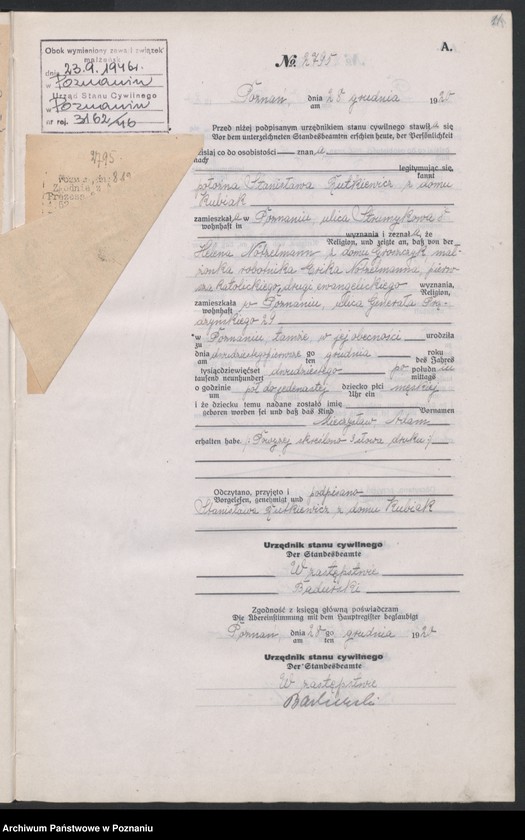 A.
Obok wymieniony zawarł związek
małżeński
dnia 23.9.1946r.
w Poznaniu
Urząd Stanu Cywilnego
w Poznaniu
nr rej. 3162/46
№ 2795
Poznań, dnia 28 grudnia 1920
am
Przed niżej podpisanym urzędnikiem stanu cywilnego stawiła się
Vor dem unterzeichneten Standesbeamten erschien heute, der Persönlichkeit
dzisiaj co do osobistości znan
nach
legitymując się,
kannt
położna Stanisława Rutkiewicz z domu
Kubiak
zamieszkała w Poznaniu, ulica Strumykowa
wohnhaft in
wyznania i zeznała, że
Religion, und zeigte an, daß von der
Helena Notzelmann z domu Gronczyk mał-
żonka robotnika Eryka Notzelmanna, pierw-
sza katolickiego, drugi ewangelickiego wyznania,
Religion,
zamieszkała w Poznaniu, ulica Generała Prą-
wohnhaft
dzyńskiego 21
w Poznaniu tamże w jej obecności urodziła
zu
dnia dwudziestegopierwszego grudnia roku
am ten des Jahres
tysiącdziewięćset dwudziestego po połudn iu
tausend neunhundert mittags
o godzinie pół do jedenastej dziecko płci męskiej
um Uhr ein
i że dziecku temu nadane zostało imię
geboren worden sei und daß das Kind Vornamen
Mieczysław Adam
erhalten habe. (Powyżej skreślono słowa druku)
Odczytano, przyjęto i podpisano
Vorgelesen, genehmigt und
Stanisława Rutkiewicz z domu Kubiak
Urzędnik stanu cywilnego
Der Standesbeamte
W zastępstwie
Zgodność z księgą główną poświadczam
Die Übereinstimmung mit dem Hauptregister beglaubigt
Poznań, dnia 28 go grudnia 1920
am ten
Urzędnik stanu cywilnego
Der Standesbeamte
W zastępstwie
2795
Archiwum Państwowe w Poznaniu